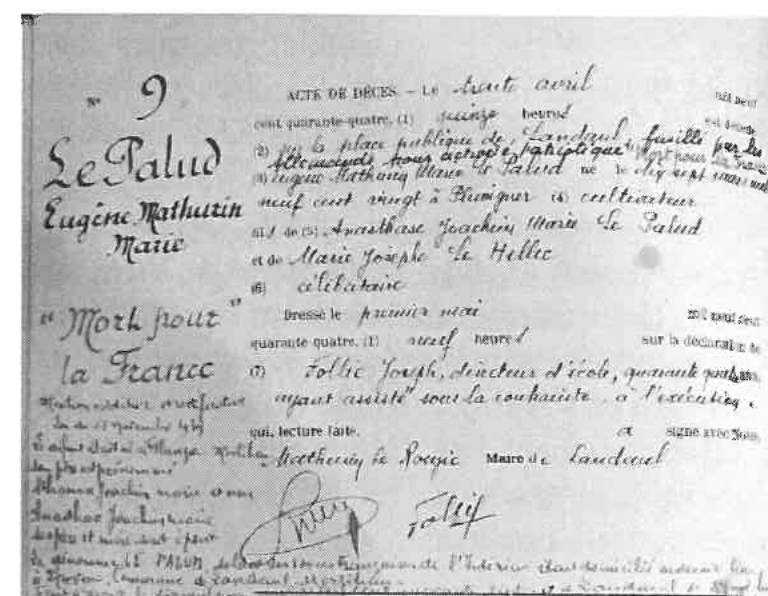 N° 9
Le Palud
Eugène Mathurin
Marie
"Mort pour"
la France
ACTE DE DÉCÈS. — Le trente avril mil neuf
cent quarante-quatre, (1) quinze heures est décédé
(2) sur la place publique de Landaul, fusillé par les
allemands pour activité patriotique "Mort pour la France"
(3) Eugène Mathurin Marie Le Palud né le dix sept mars mil
neuf cent vingt à Pluvigner (4) cultivateur
fils de (5) Anasthase Joachim Marie Le Palud
et de Marie Josèphe Le Hellec
(6) célibataire
Dressé le premier mai mil neuf cent
quarante quatre, (1) neuf heures sur la déclaration de
(7) Follic Joseph, directeur d'école, quarante quatre ans,
ayant assisté sous la contrainte, à l'exécution,
qui, lecture faite, a signé avec Nous,
Mathurin Le Rouzic Maire de Landaul
père est prénommé
Joachim marie et non
Anasthase Joachim marie
LE PALUD, de l'Intérieur étant domicilié
commune de Landaul Morbihan